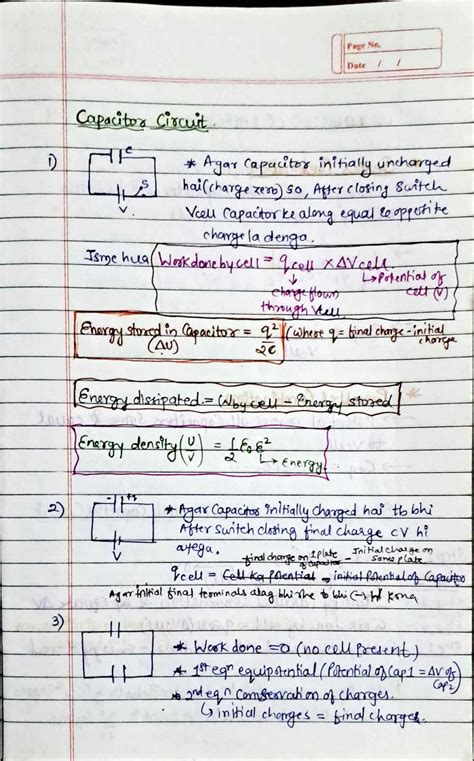 Page No.
Date / /
Capacitor Circuit.
1) C
S
V
* Agar capacitor initially uncharged
hai (charge zero) so, After closing switch
Vcell Capacitor ke along equal & opposite
charge la denga.
Isme hua Work done by cell = qcell × ΔVcell
↓ ↳ Potential of
charge flown cell (V)
through Vcell
Energy stored in Capacitor = q²/2C (where q = final charge - initial
(ΔU) charge
Energy dissipated = Wby cell - Energy stored
Energy density (U/V) = 1/2 ε₀ε²
↳ Energy.
2) - +
V
* Agar Capacitor initially charged hai tb bhi
After switch closing final charge CV hi
ayega.
final charge on 1 plate of capacitor - Initial charge on same plate
qcell = Cell ka Potential - initial Potential of Capacitor
Agar initial final terminals alag bhi the to bhi (-)
3)
* Work done = 0 (no cell present)
* 1st eqn equipotential (Potential of Cap1 = ΔV of Cap2)
* 2nd eqn Conservation of charges.
↳ initial charges = final charges.